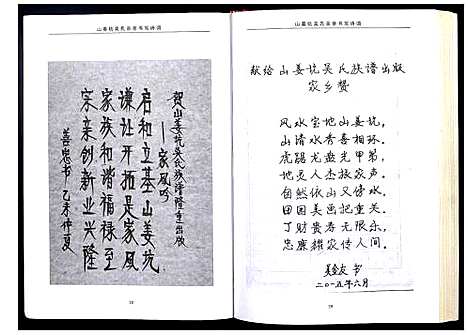 山姜坑吴氏宗亲书写诗词
贺山姜坑吴氏族谱隆重出版
—家风吟
启和立基山姜坑
谦让开拓是家风
家族和谐福禄至
宗亲创新业兴隆
善忠书 乙未仲夏
山姜坑吴氏宗亲书写诗词
献给山姜坑吴氏族谱出版
家乡赞
风水宝地山姜坑,
山清水秀喜相环。
虎踞龙盘光甲弟,
地灵人杰振家声。
自然依山又傍水,
田园美画把重关。
丁财贵寿无限乐,
忠廉耀家传人间。
书
二〇一五年六月